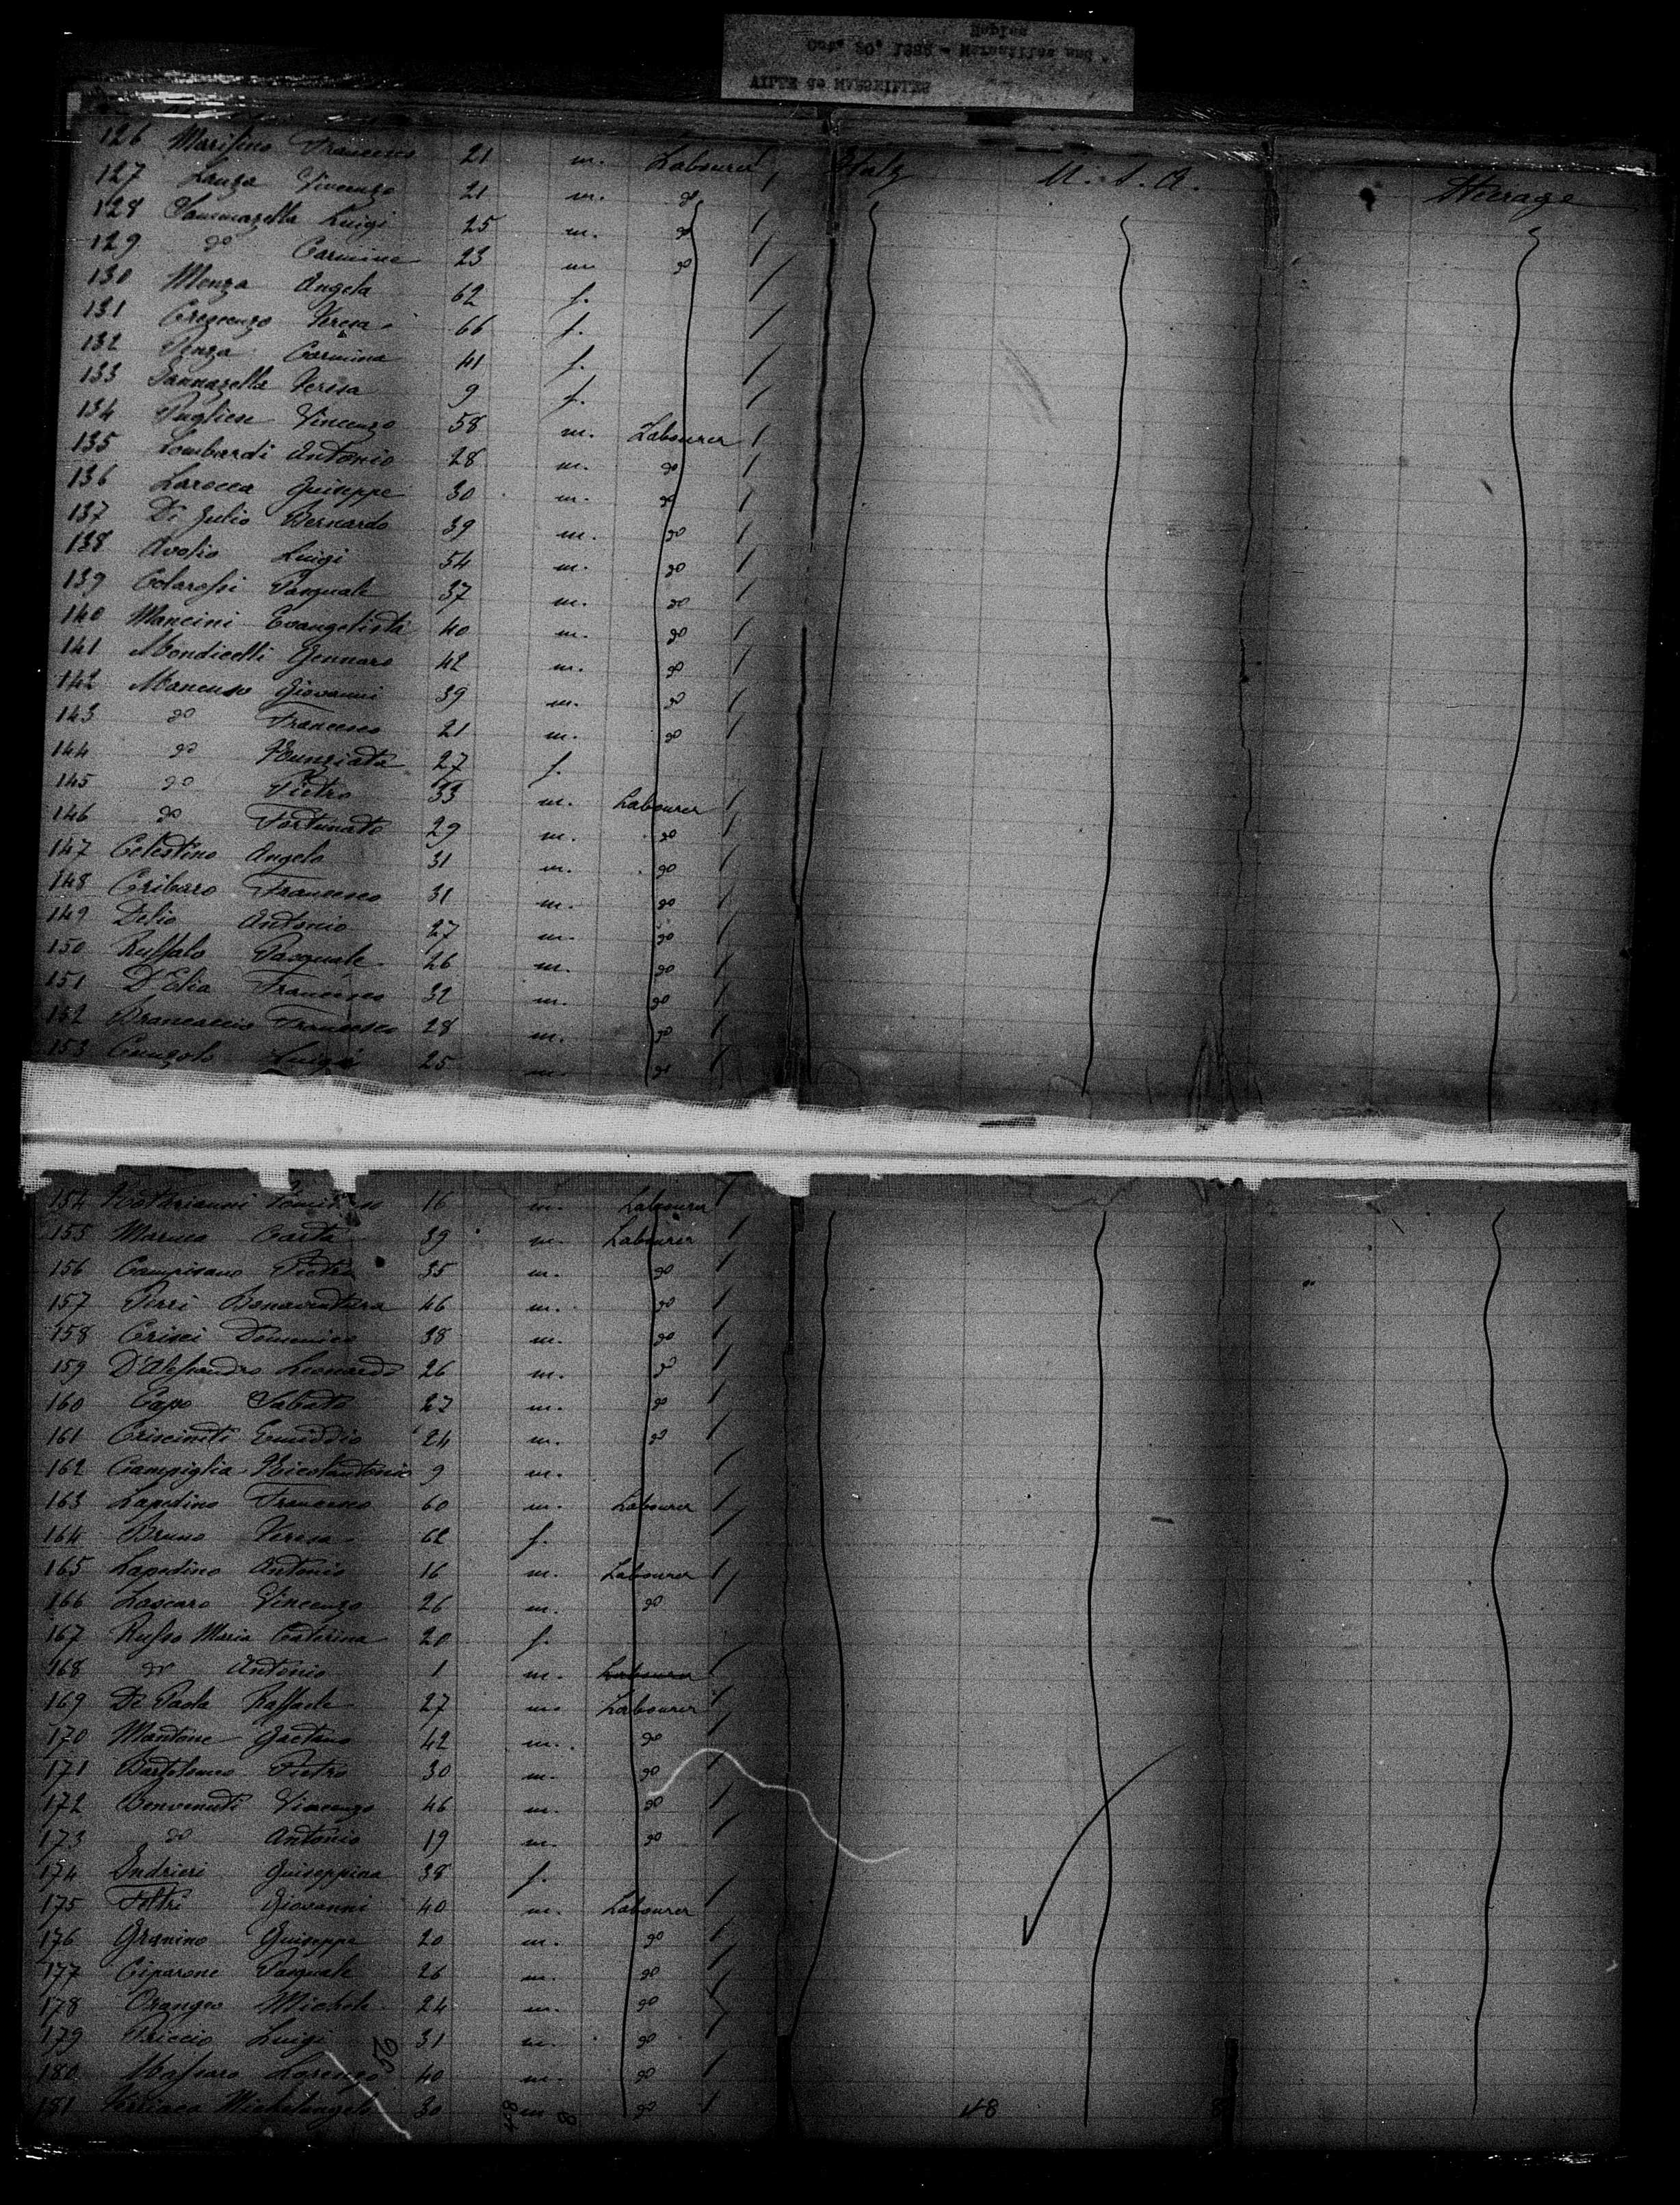 VILLE de MARSEILLES
Oct. 30, 1882 - Marseilles and
Naples
126 Marisino Francesco 21 m. Labourer Italy U.S.A. Steerage
127 Lanza Vincenzo 21 m. do
128 Sannazella Luigi 25 m. do
129 do Carmine 23 m. do
130 Monza Angela 62 f.
131 Crescenzo Teresa 66 f.
132 Venza Carmina 41 f.
133 Sannazella Teresa 9 f.
134 Pugliese Vincenzo 58 m. Labourer
135 Lombardi Antonio 28 m. do
136 Larocca Guiseppe 30 m. do
137 Di Julio Bernardo 39 m. do
138 Avolio Luigi 54 m. do
139 Colarossi Pasquale 37 m. do
140 Mancini Evangelista 40 m. do
141 Mondicelli Gennaro 42 m. do
142 Mancuso Giovanni 39 m. do
143 do Francesco 21 m. do
144 do Nunziata 27 f.
145 do Pietro 33 m. Labourer
146 do Fortunato 29 m. do
147 Celestino Angelo 31 m. do
148 Cribaro Francesco 31 m. do
149 Delio Antonio 27 m. do
150 Ruffalo Pasquale 26 m. do
151 D'Elia Francesco 32 m. do
152 Brancaccio Francesco 28 m. do
153 Luigi 25 m. do
154 16 m. Labourer
155 Maruca Carta 39 m. Labourer
156 Campisano Pietro 35 m. do
157 Perri Bonaventura 46 m. do
158 Crisci Domenico 38 m. do
159 D'Alessandro Leonardo 26 m. do
160 Capo Sabato 27 m. do
161 Crisciniti Emiddio 24 m. do
162 Campiglia Nicolantonio 9 m.
163 Lapedino Francesco 60 m. Labourer
164 Bruno Teresa 62 f.
165 Lapedino Antonio 16 m. Labourer
166 Lascaro Vincenzo 26 m. do
167 Russo Maria Caterina 20 f.
168 do Antonio 1 m. Labourer
169 De Paola Raffaele 27 m. Labourer
170 Mantone Gaetano 42 m. do
171 Bartolomeo Pietro 30 m. do
172 Benvenuti Vincenzo 46 m. do
173 do Antonio 19 m. do
174 Indrieri Guiseppina 38 f.
175 Feltri Giovanni 40 m. Labourer
176 Granino Guiseppe 20 m. do
177 Ciparone Pasquale 26 m. do
178 Orangeo Michele 24 m. do
179 Priccio Luigi 31 m. do
180 Massaro Lorenzo 40 m. do
181 Michelangelo 30 m do
25
48 8 48 8